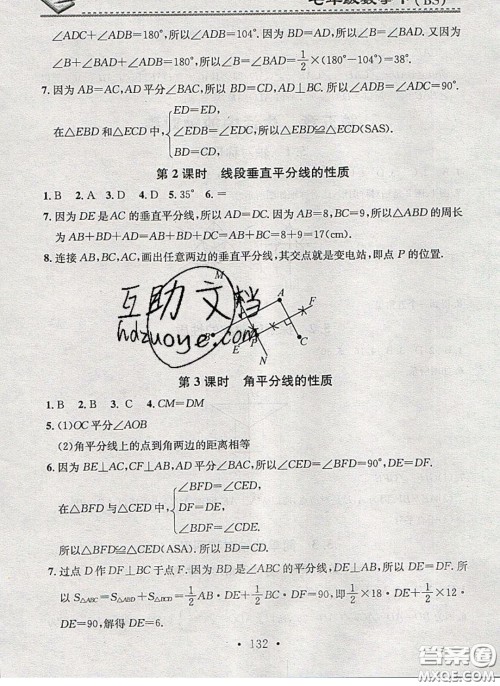 七年级数学下(BS)
∠ADC+∠ADB=180°,所以∠ADB=104°.因为BD=AD,所以∠B=∠BAD.又因为
∠B+∠BAD+∠ADB=180°,所以∠B=∠BAD=1/2×(180°-104°)=38°.
7.因为AB=AC,AD平分∠BAC,所以BD=CD,AD⊥BC.所以∠ADB=∠ADC=90°.
ED=ED,
在△EBD和△ECD中,∠EDB=∠EDC,所以△EBD≌△ECD(SAS).
BD=CD,
第2课时 线段垂直平分线的性质
1.B 2.A 3.D 4.D 5.35° 6.=
7.因为DE是AC的垂直平分线,所以AD=CD.因为AB=8,BC=9,所以△ABD的周长
为AB+BD+AD=AB+BD+CD=AB+BC=8+9=17(cm).
8.连接AB,BC,AC,画出任意两边的垂直平分线,其交点就是变电站,即点P的位置.
M
A
F
互助文档
hdzuoye.com
B
E
C
N
第3课时 角平分线的性质
1.B 2.B 3.C 4.CM=DM
5.(1)OC平分∠AOB
(2)角平分线上的点到角两边的距离相等
6.因为BE⊥AC,CF⊥AB,AD平分∠BAC,所以∠CED=∠BFD=90°,DE=DF.
∠BFD=∠CED,
在△BFD与△CED中,DF=DE,
∠BDF=∠CDE.
所以△BFD≌△CED(ASA).所以BD=CD.
7.过点D作DF⊥BC于点F.因为BD是∠ABC的平分线,DE⊥AB,所以DE=DF.所
以S△ABC=S△ABD+S△BCD=1/2AB·DE+1/2BC·DF=90,即1/2×18·DE+1/2×12·
DE=90,解得DE=6.
·132·
答案圈
MXQE.COM